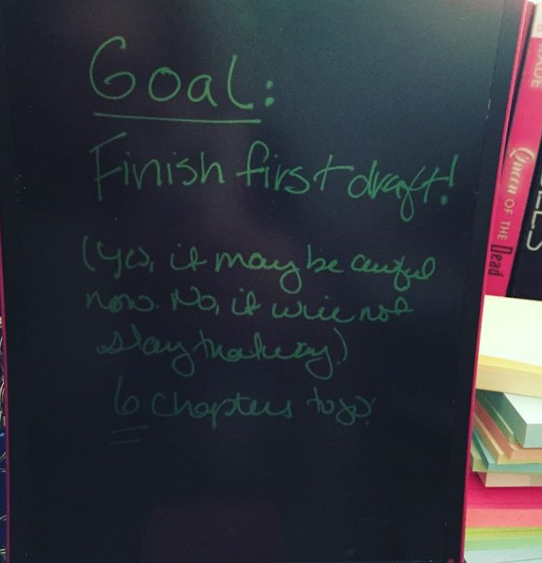 Goal:
Finish first draft!
(Yes, it may be awful
now. No, it will not
stay that way)
6 Chapters to go!
Queen OF THE Dead